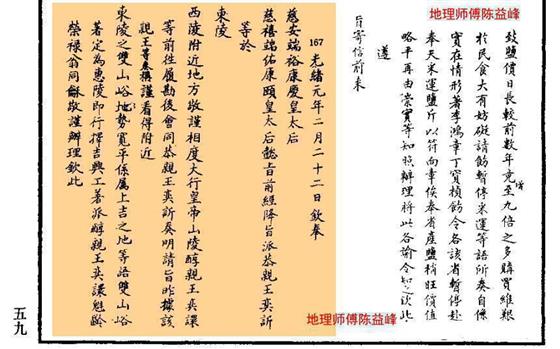 地理师傅陈益峰
致鹽價日長較前數年竟增至九倍之多購買維艱
於民食大有妨礙請飭暫停采運等語所奏自係
實在情形著李鴻章丁寶楨飭令各該省暫停赴
奉天采運鹽斤以符向章俟奉省產鹽稍旺價值
略平再由崇實等知照辦理將此各諭令知之欽此
遵
旨寄信前来
167 光緒元年二月二十二日欽奉
慈安端裕康慶皇太后
慈禧端佑康頤皇太后懿旨前經降旨派恭親王奕訢
等於
東陵
西陵附近地方敬謹相度大行皇帝山陵醇親王奕譞
等前往履勘後會同恭親王奕訢奏明請旨昨據該
親王等奏稱謹看得附近
東陵之雙山峪地勢寬平係屬上吉之地等語雙山峪
著定為惠陵即行擇吉興工著派醇親王奕譞魁齡
榮祿翁同龢敬謹辦理欽此
地理师傅陈益峰
五九